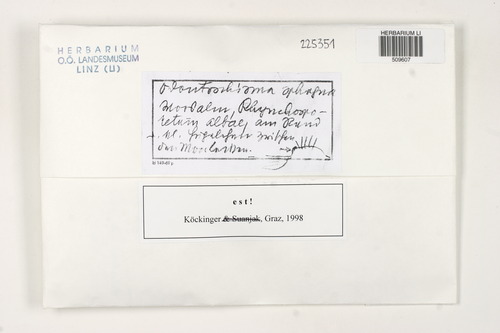 HERBARIUM
O.Ö. LANDESMUSEUM
LINZ (LI)
225351
HERBARIUM LI
509607
Odontoschisma sphagni
Moosalm, Rhynchospo-
retum albae, am Rand
zwischen
den Moorlacken.
est!
Köckinger & Suanjak, Graz, 1998